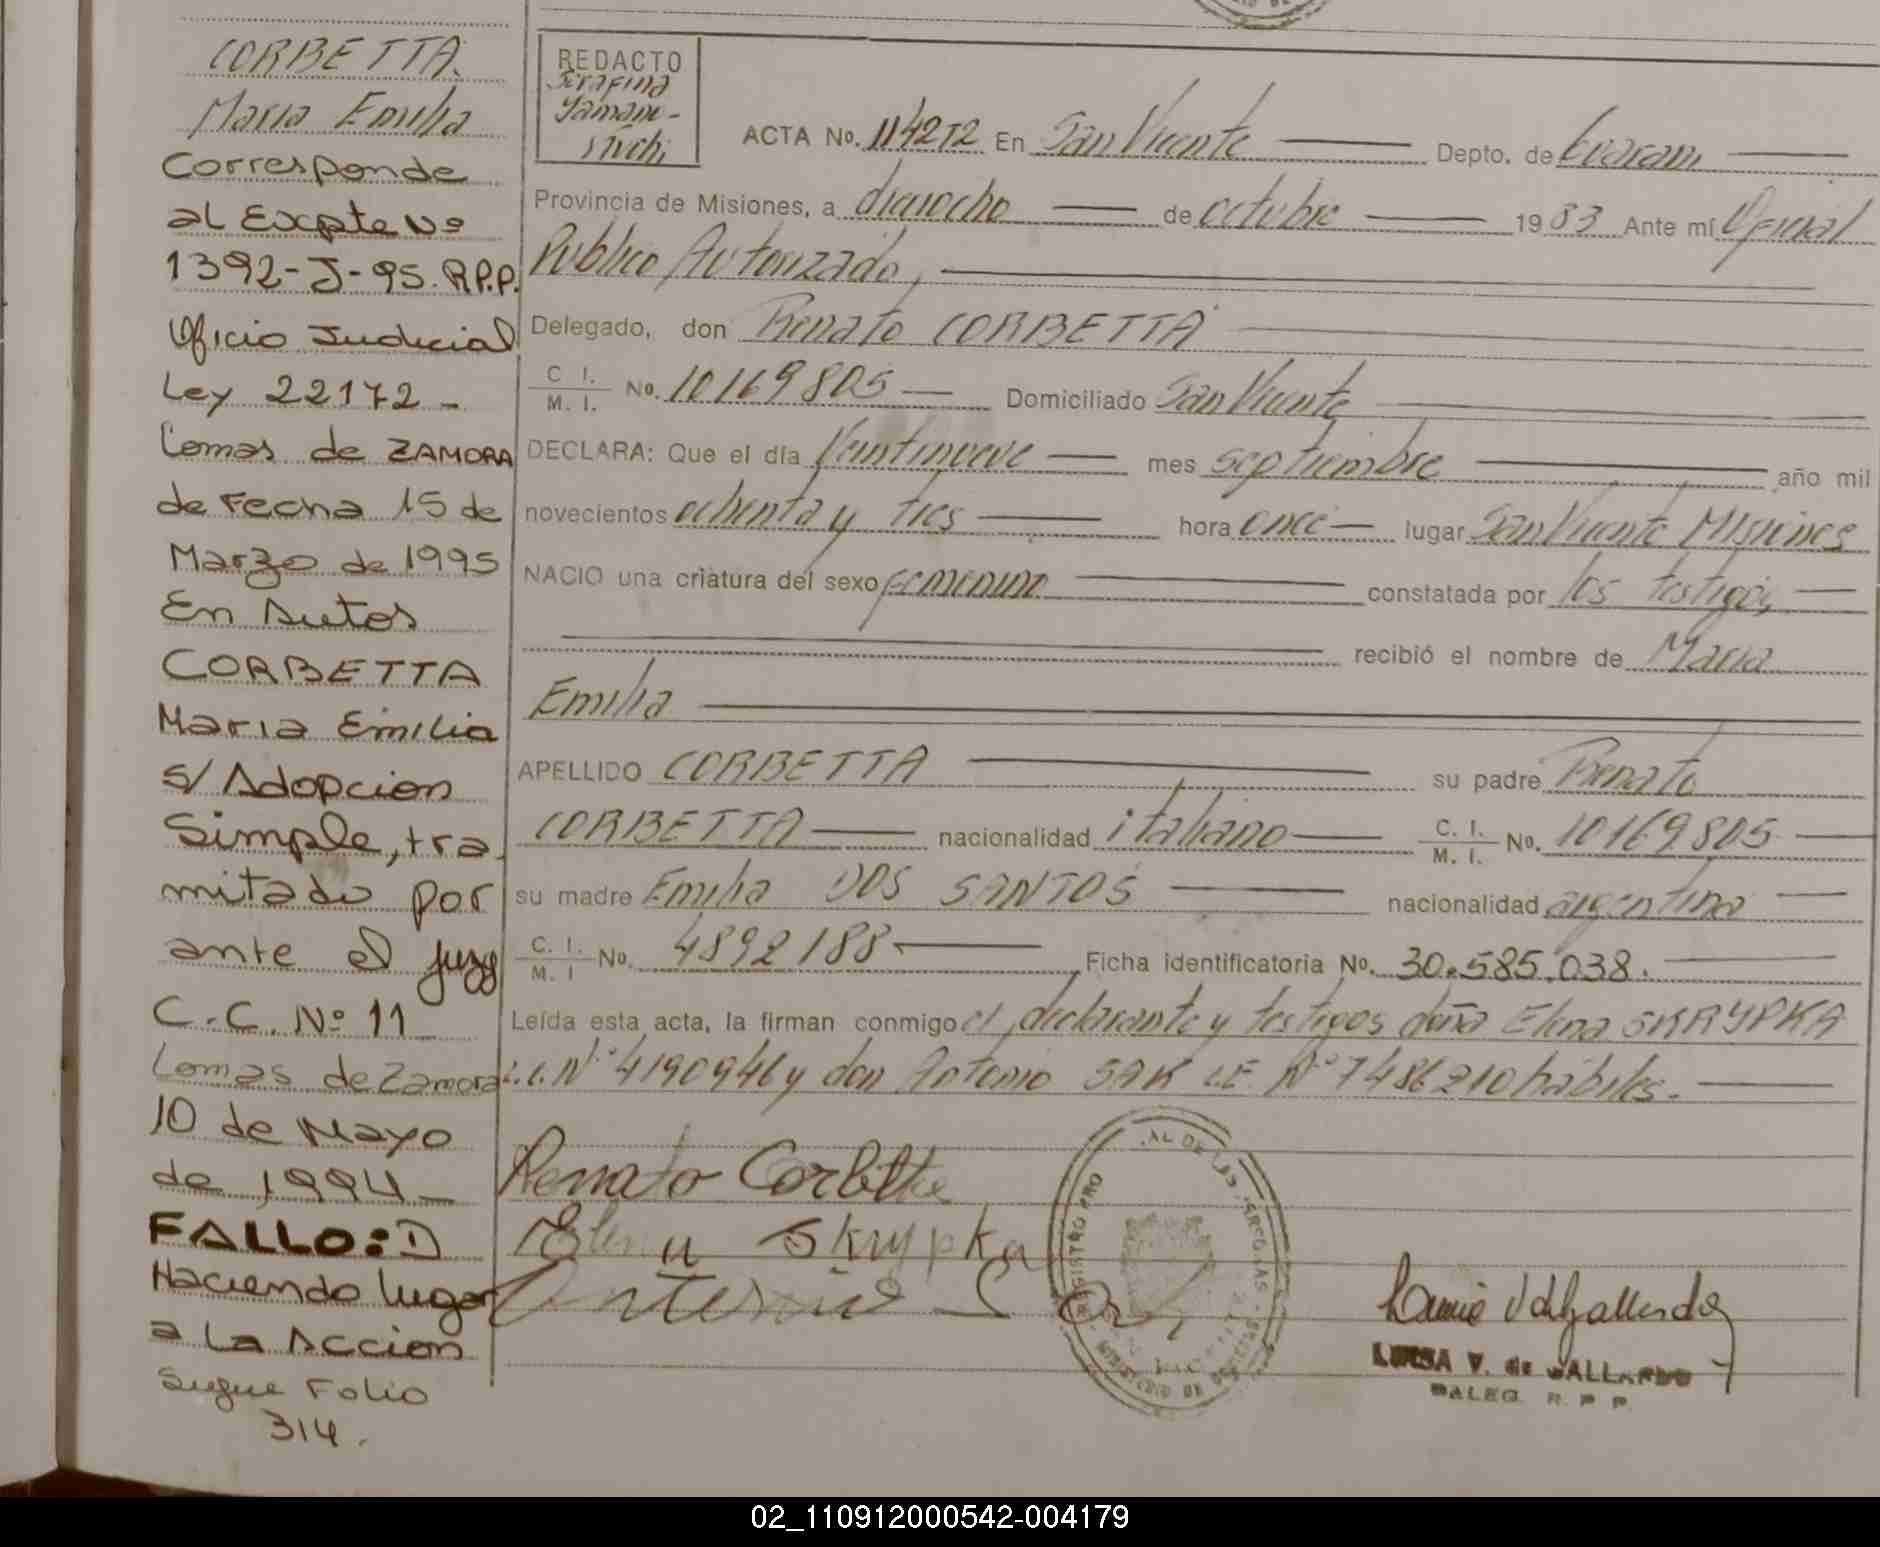 CORBETTA.
Maria Emilia
Corresponde
al Expte Nº
1392-J-95. R.P.P.
Oficio Judicial
Ley 22172 -
Lomas de ZAMORA
de Fecha 15 de
Marzo de 1995
En Autos
CORBETTA
Maria Emilia
s/ Adopcion
Simple, tra
mitado por
ante el juzg
C.C. Nº 11
Lomas de Zamora
10 de Mayo
de 1994 -
FALLO: 1)
Haciendo lugar
a la Accion
Sigue Folio
314.
REDACTO
Serafina
Yamani-
ACTA No. 114 272 En San Vicente Depto. de Guarani
Provincia de Misiones, a dieciocho de octubre 1983 Ante mí Oficial
Publico Autorizado,
Delegado, don Renato CORBETTA
C. I. / M. I. No. 10169805 Domiciliado San Vicente
DECLARA: Que el día Veintinueve mes septiembre año mil
novecientos ochenta y tres hora once lugar San Vicente Misiones
NACIO una criatura del sexo femenino constatada por los testigos,
recibió el nombre de Maria
Emilia
APELLIDO CORBETTA su padre Renato
CORBETTA nacionalidad italiano C. I. / M. I. No. 10169805
su madre Emilia DOS SANTOS nacionalidad argentina
C. I. / M. I No. 4892188 Ficha identificatoria No. 30.585.038.
Leída esta acta, la firman conmigo el declarante y testigos doña Elena SKRYPKA
L.C. Nº 4190946 y don Antonio SAK L.E. Nº 7486210 hábiles.
Renato Corbetta
Elena Skrypka
Antonio Sak
LUISA V. de GALLARDO
DALEG. R. P. P.
02_110912000542-004179